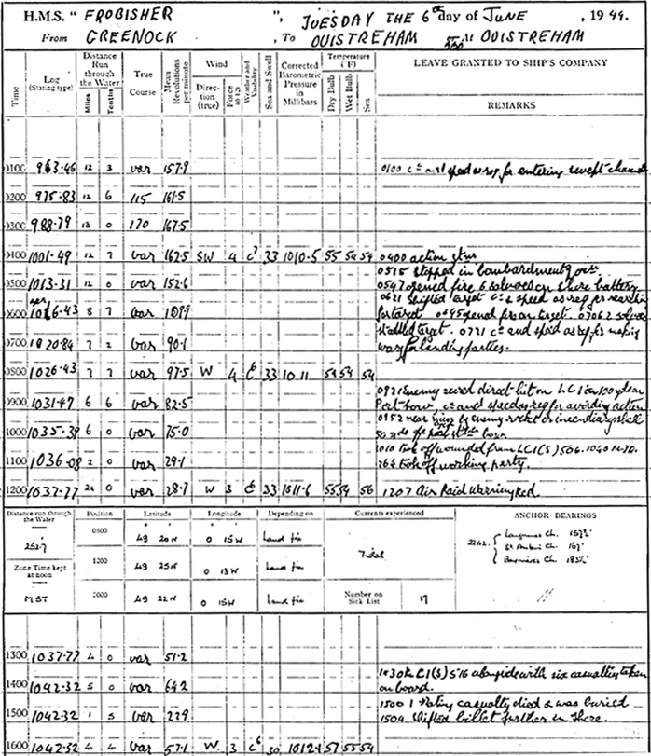 H.M.S. " FROBISHER ", TUESDAY THE 6th day of JUNE, 1944.
From GREENOCK, To OUISTREHAM AND At OUISTREHAM
Time
Log (Stating type)
Distance Run through the Water
Miles
Tenths
True Course
Mean Revolutions per minute
Wind
Direction (true)
Force
Weather and Visibility
Sea and Swell
Corrected Barometric Pressure in Millibars
Temperature (F)
Dry Bulb
Wet Bulb
Sea
LEAVE GRANTED TO SHIP'S COMPANY
REMARKS
0100 963.46 12 3 var 157.9
0100 co and speed as req for entering swept channel
0200 975.83 12 6 115 161.5
0300 988.79 13 0 170 167.5
0400 1001.49 12 7 var 162.5 SW 4 33 1010.5 55 54 54
0400 action stns
0515 stopped in bombardment posn
0500 1013.31 12 0 var 152.6
0547 opened fire 6 salvoes on shore battery
0621 shifted target co & speed as req for
0600 8 7 var
for target 0645 opened fire on target.
0700 1020.84 7 2 var 90.1
straddled target. 0721 co and speed as req for making
way for landing parties.
0800 1026.43 7 7 var 97.5 W 4 33 1011 54 54 54
Enemy scored direct hit on LCI
0900 1031.47 6 6 var 82.5
Port bow, co and speed as req for avoiding action
0952 near enemy rocket or incendiary shell
1000 1035.39 6 0 var 75.0
50 yds off port bow.
1100 1036.08 2 0 var 29.1
1010 Took off wounded from LCI(S) 506. 1040
took off working party.
1200 1037.77 0 var 28.7 W 3 33 1011.6 55 54 56
1207 Air Raid Warning Red
Distance run through the Water
252.7
Zone Time kept at noon
Position
Latitude
Longitude
Depending on
Currents experienced
ANCHOR BEARINGS
0800 49 20 N 0 15 W Land fix
Tidal
1200 49 25 N 0 13 W Land fix
2000 49 22 N 0 15 W Land fix
Number on Sick List
17
Langrune Ch.
St Aubin Ch.
Bernieres Ch.
1300 1037.77 4 0 var 51.2
1330 LCI(S) 516 alongside with six casualties taken
1400 1042.32 5 0 var 64.2
on board.
1500 1 Rating casualty died & was buried
1500 1042.32 1 5 var 22.9
1504 Shifted billet further in shore.
1600 1042.52 4 4 var 57.1 W 3 30 1012.1 57 55 54